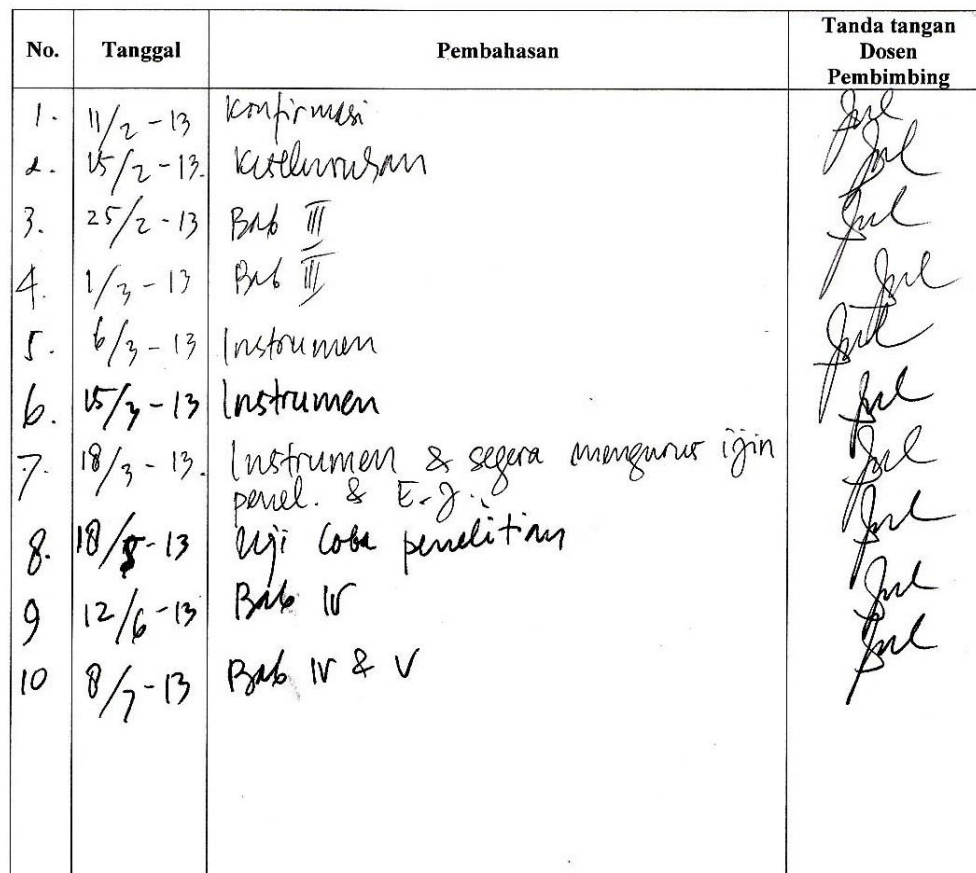 No. Tanggal Pembahasan Tanda tangan Dosen Pembimbing
1. 11/2 - 13 Konfirmasi
2. 15/2 - 13. Keseluruhan
3. 25/2 - 13 Bab III
4. 1/3 - 13 Bab III
5. 6/3 - 13 Instrumen
6. 15/3 - 13 Instrumen
7. 18/3 - 13. Instrumen & segera mengurus ijin
penel. & E.J.
8. 18/5 - 13 Uji coba penelitian
9 12/6 - 13 Bab IV
10 8/7 - 13 Bab IV & V